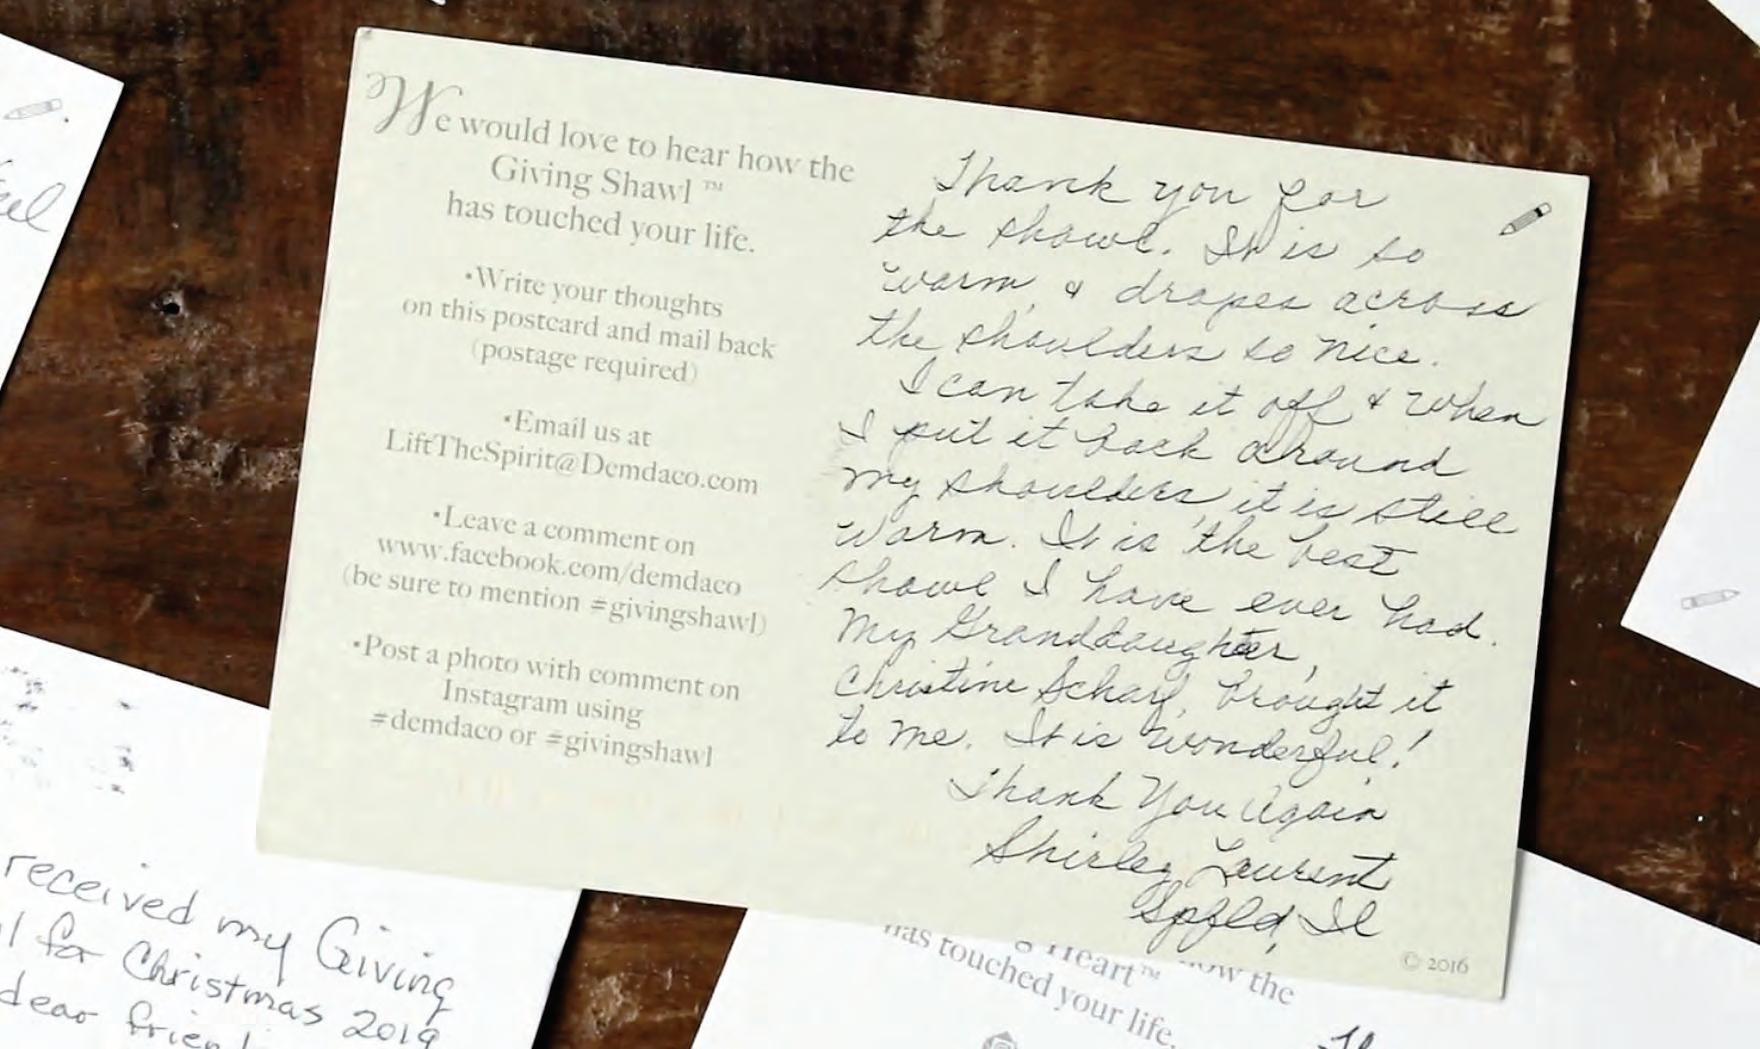 We would love to hear how the
Giving Shawl ™
has touched your life.
•Write your thoughts
on this postcard and mail back
(postage required)
•Email us at
LiftTheSpirit@Demdaco.com
•Leave a comment on
www.facebook.com/demdaco
(be sure to mention #givingshawl)
•Post a photo with comment on
Instagram using
#demdaco or #givingshawl
Thank you for
the shawl. It is so
warm, & drapes across
the shoulders so nice.
I can take it off & when
I put it back around
my shoulders, it is still
warm. It is the best
shawl I have ever had.
My Granddaughter,
Christine Scharf, brought it
to me. It is wonderful!
Thank You Again
Shirley Laurent
Spfld, Il
© 2016
received my Giving
for Christmas 2019
dear
Heart™ how the
has touched your life.